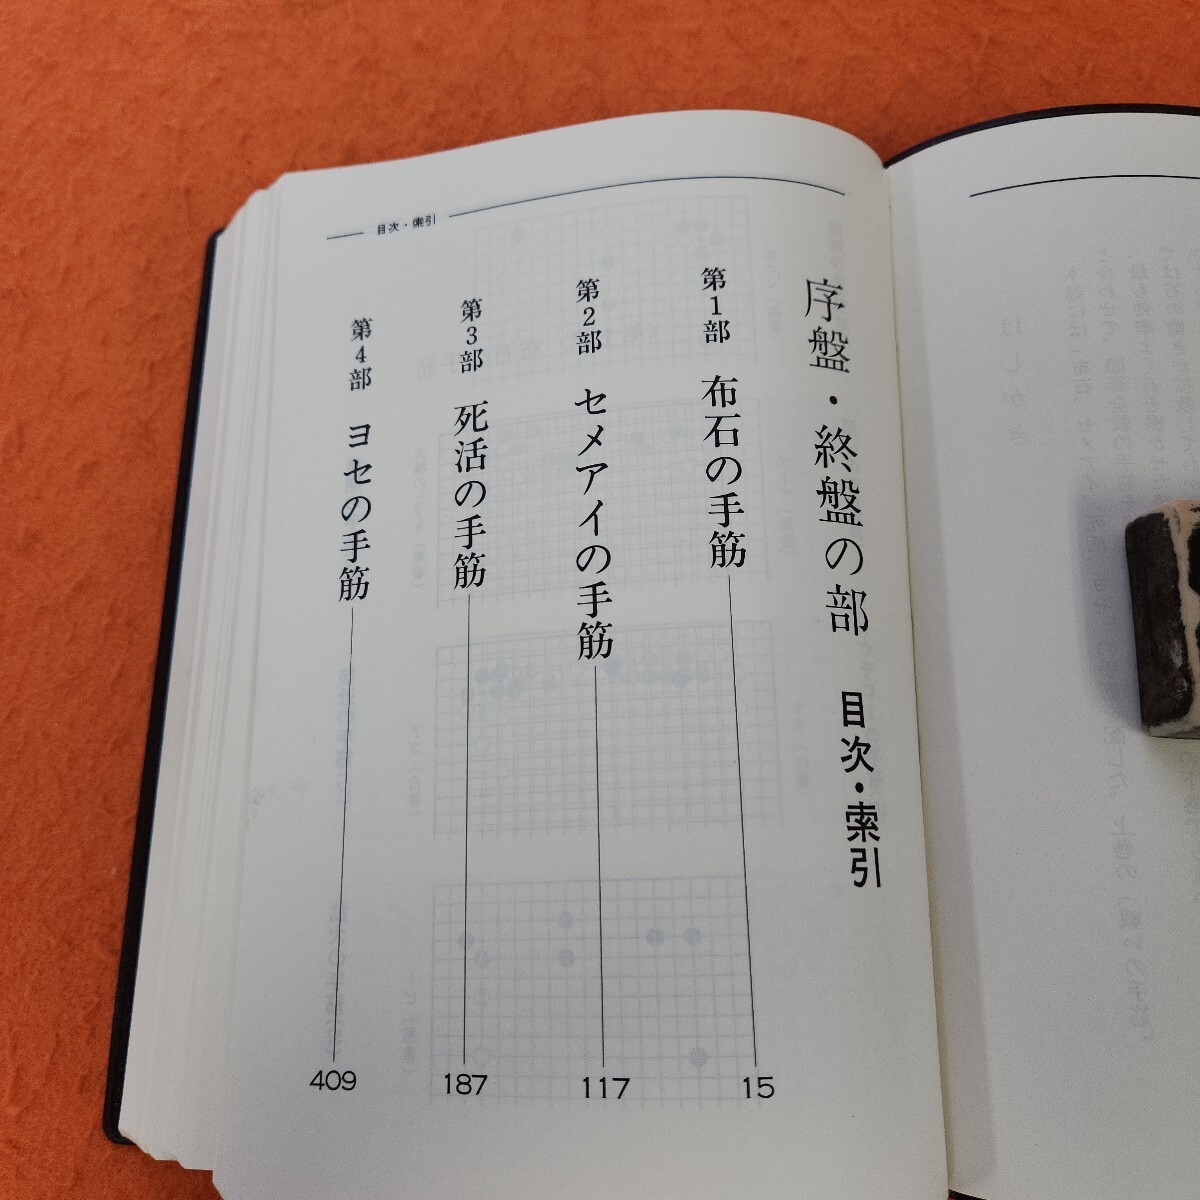 目次・索引
序盤・終盤の部 目次・索引
第1部 布石の手筋 15
第2部 セメアイの手筋 117
第3部 死活の手筋 187
第4部 ヨセの手筋 409